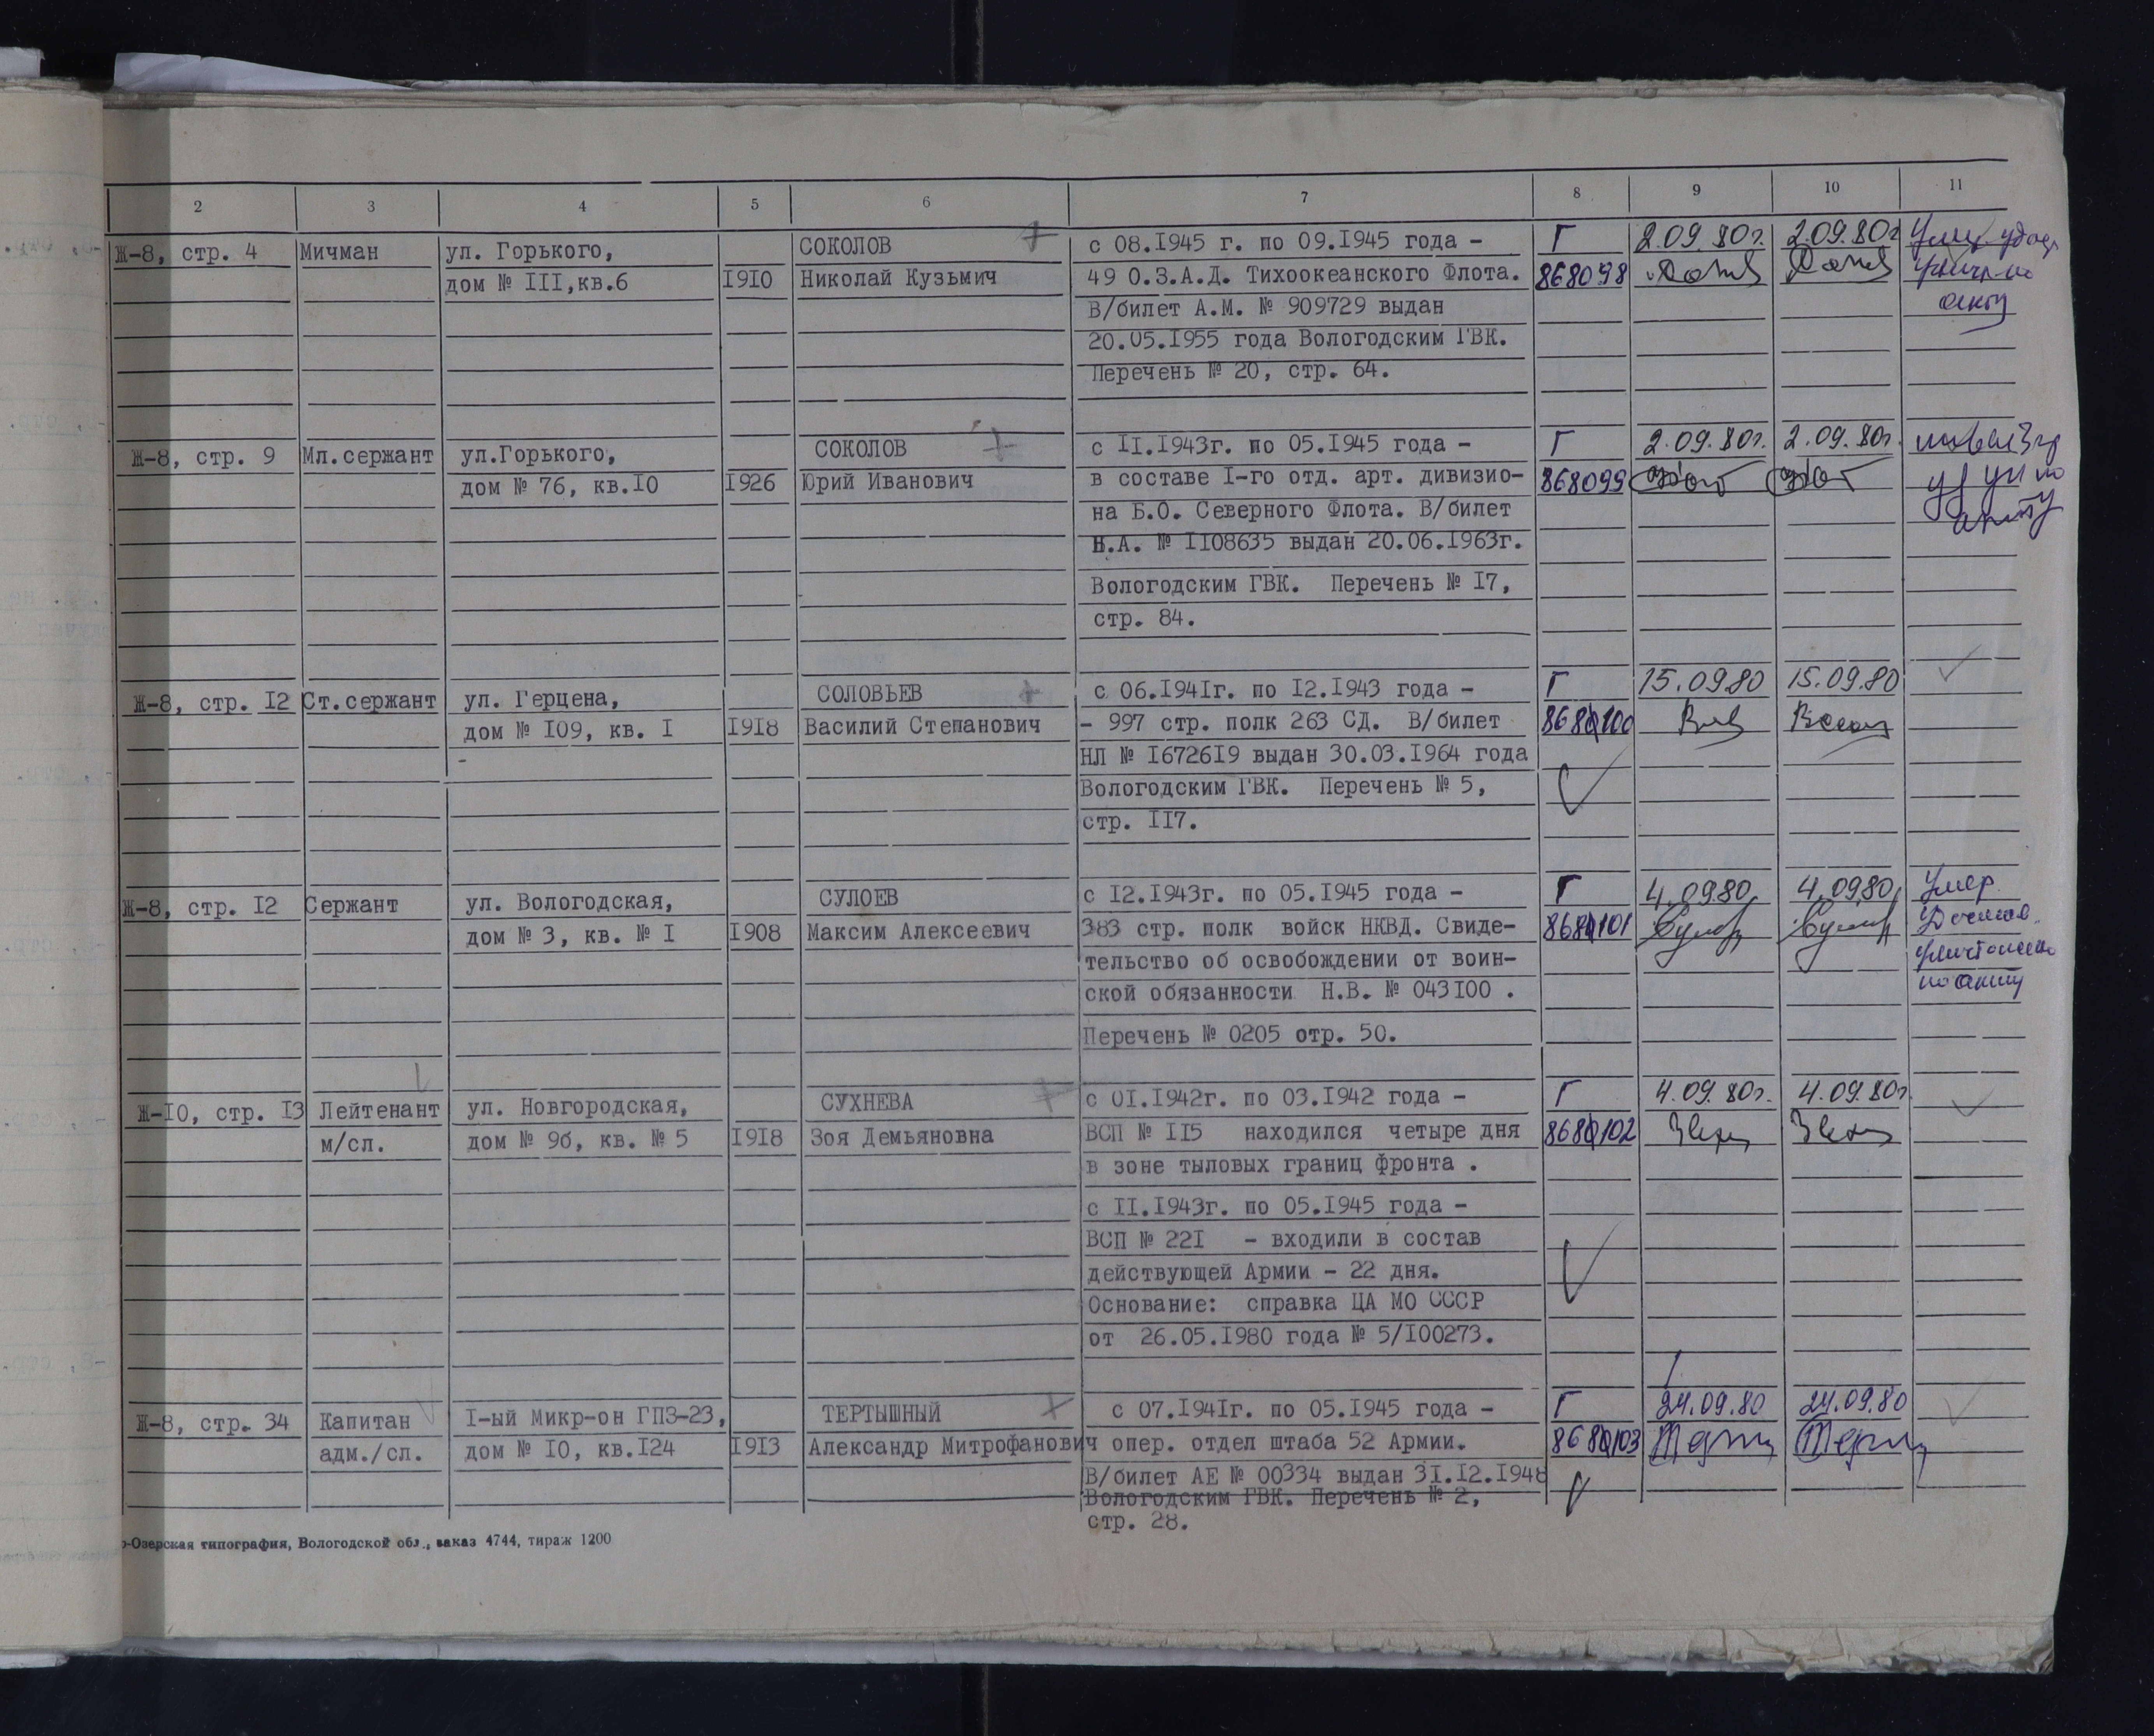 2 3 4 5 6 7 8 9 10 11
Ж-8, стр. 4 Мичман ул. Горького, СОКОЛОВ с 08.I945 г. по 09.I945 года - Г 2.09.80г. 2.09.80г
дом № III,кв.6 I9I0 Николай Кузьмич 49 О.З.А.Д. Тихоокеанского Флота. 868098
В/билет А.М. № 909729 выдан акту
20.05.I955 года Вологодским ГВК.
Перечень № 20, стр. 64.
Ж-8, стр. 9 Мл.сержант ул.Горького, СОКОЛОВ с II.I943г. по 05.I945 года - Г 2.09.80г. 2.09.80г.
дом № 76, кв.I0 I926 Юрий Иванович в составе I-го отд. арт. дивизио- 868099
на Б.О. Северного Флота. В/билет акту
Н.А. № II08635 выдан 20.06.I963г.
Вологодским ГВК. Перечень № I7,
стр. 84.
Ж-8, стр. I2 Ст.сержант ул. Герцена, СОЛОВЬЕВ с 06.I94Iг. по I2.I943 года - Г 15.09.80 15.09.80
дом № I09, кв. I I9I8 Василий Степанович - 997 стр. полк 263 СД. В/билет 868100
НЛ № I6726I9 выдан 30.03.I964 года
Вологодским ГВК. Перечень № 5,
стр. II7.
Ж-8, стр. I2 Сержант ул. Вологодская, СУЛОЕВ с I2.I943г. по 05.I945 года - Г 4.09.80 4.09.80 Умер
дом № 3, кв. № I I908 Максим Алексеевич 383 стр. полк войск НКВД. Свиде- 868101
тельство об освобождении от воин-
ской обязанности Н.В. № 043I00 . по акту
Перечень № 0205 стр. 50.
Ж-I0, стр. I3 Лейтенант ул. Новгородская, СУХНЕВА с 0I.I942г. по 03.I942 года - Г 4.09.80г. 4.09.80г.
м/сл. дом № 9б, кв. № 5 I9I8 Зоя Демьяновна ВСП № II5 находился четыре дня 868102
в зоне тыловых границ фронта .
с II.I943г. по 05.I945 года -
ВСП № 22I - входили в состав
действующей Армии - 22 дня.
Основание: справка ЦА МО СССР
от 26.05.I980 года № 5/I00273.
Ж-8, стр. 34 Капитан I-ый Микр-он ГПЗ-23, ТЕРТЫШНЫЙ с 07.I94Iг. по 05.I945 года - Г 24.09.80 24.09.80
адм./сл. дом № I0, кв.I24 I9I3 Александр Митрофанович опер. отдел штаба 52 Армии. 868103
В/билет АЕ № 00334 выдан 3I.I2.I948
Вологодским ГВК. Перечень № 2,
стр. 28.
-Озерская типография, Вологодской обл., заказ 4744, тираж 1200